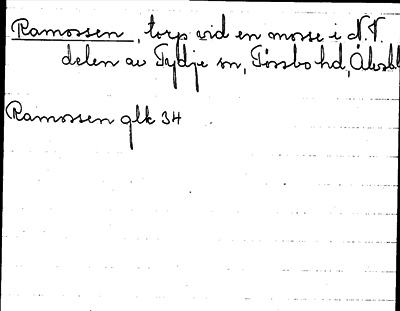 Ramossen, torp vid en mosse i N.V.
delen av Tydje sn, Tössbo hd, Älvsbl
Ramossen glk 34